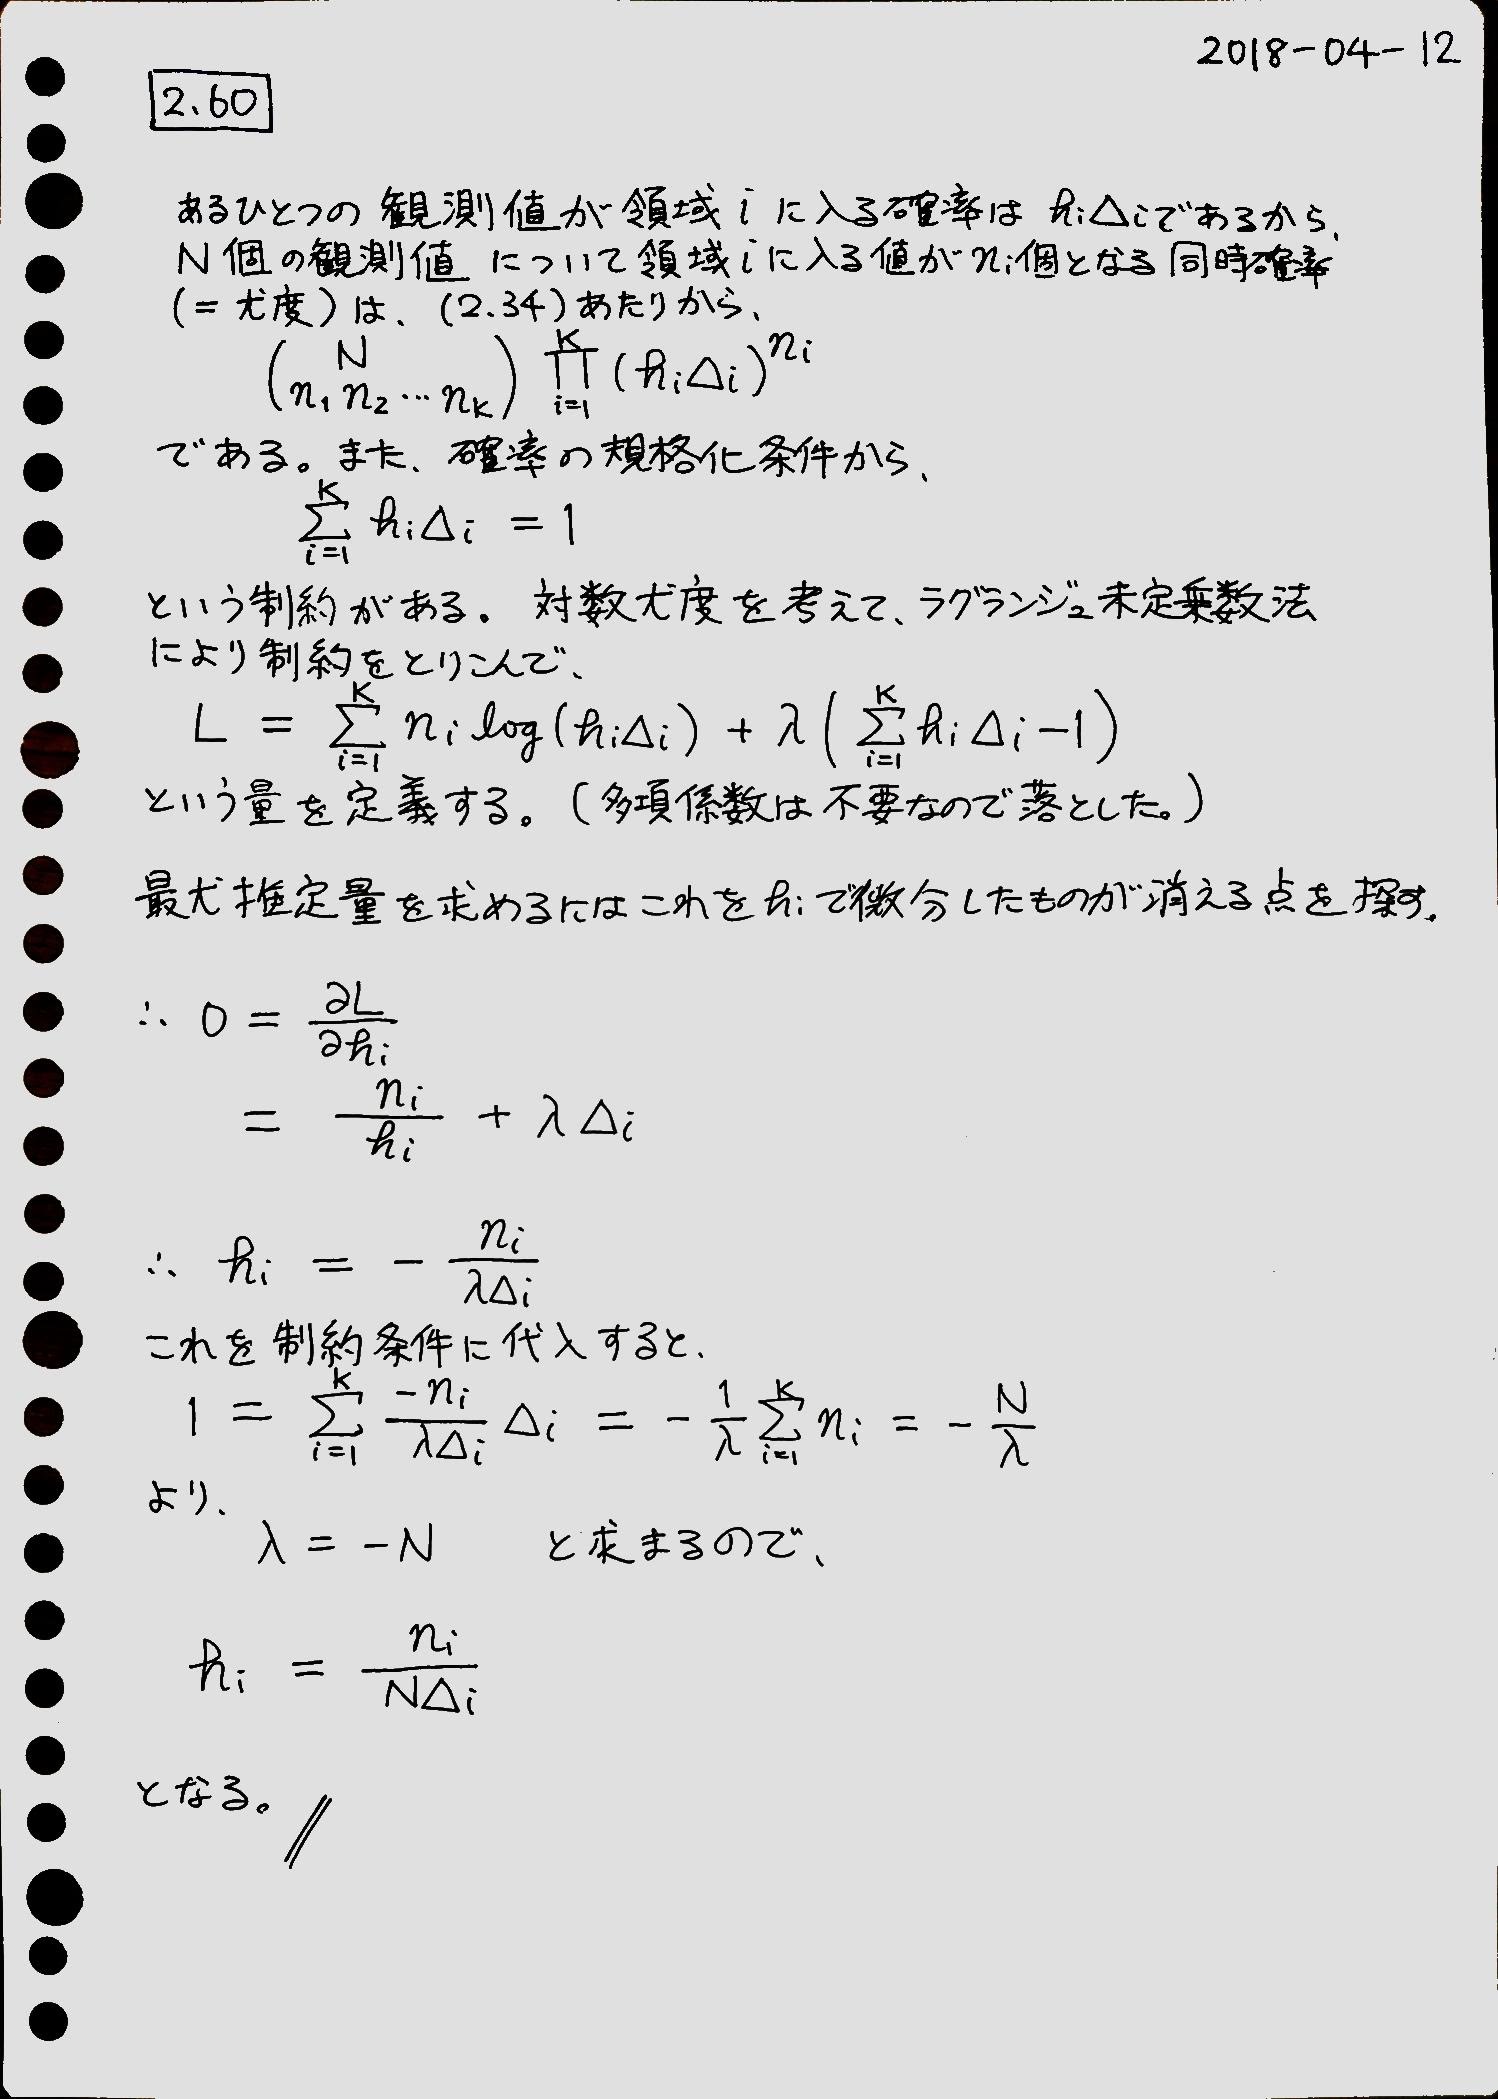 2018-04-12
2.60
あるひとつの観測値が領域 i に入る確率は hᵢΔᵢであるから、
N個の観測値について領域 i に入る値が nᵢ個となる同時確率
(= 尤度) は、(2.34)あたりから、
( N / n₁ n₂ … n_K ) ∏_{i=1}^{K} (hᵢΔᵢ)^{nᵢ}
である。また、確率の規格化条件から、
∑_{i=1}^{K} hᵢΔᵢ = 1
という制約がある。対数尤度を考えて、ラグランジュ未定乗数法
により制約をとりこんで、
L = ∑_{i=1}^{K} nᵢ log(hᵢΔᵢ) + λ ( ∑_{i=1}^{K} hᵢ Δᵢ - 1 )
という量を定義する。(多項係数は不要なので落とした。)
最尤推定量を求めるにはこれを hᵢ で微分したものが消える点を探す.
∴ 0 = ∂L/∂hᵢ
= nᵢ/hᵢ + λΔᵢ
∴ hᵢ = - nᵢ/λΔᵢ
これを制約条件に代入すると、
1 = ∑_{i=1}^{K} -nᵢ/λΔᵢ Δᵢ = - 1/λ ∑_{i=1}^{K} nᵢ = - N/λ
より、
λ = -N と求まるので、
hᵢ = nᵢ/NΔᵢ
となる。//